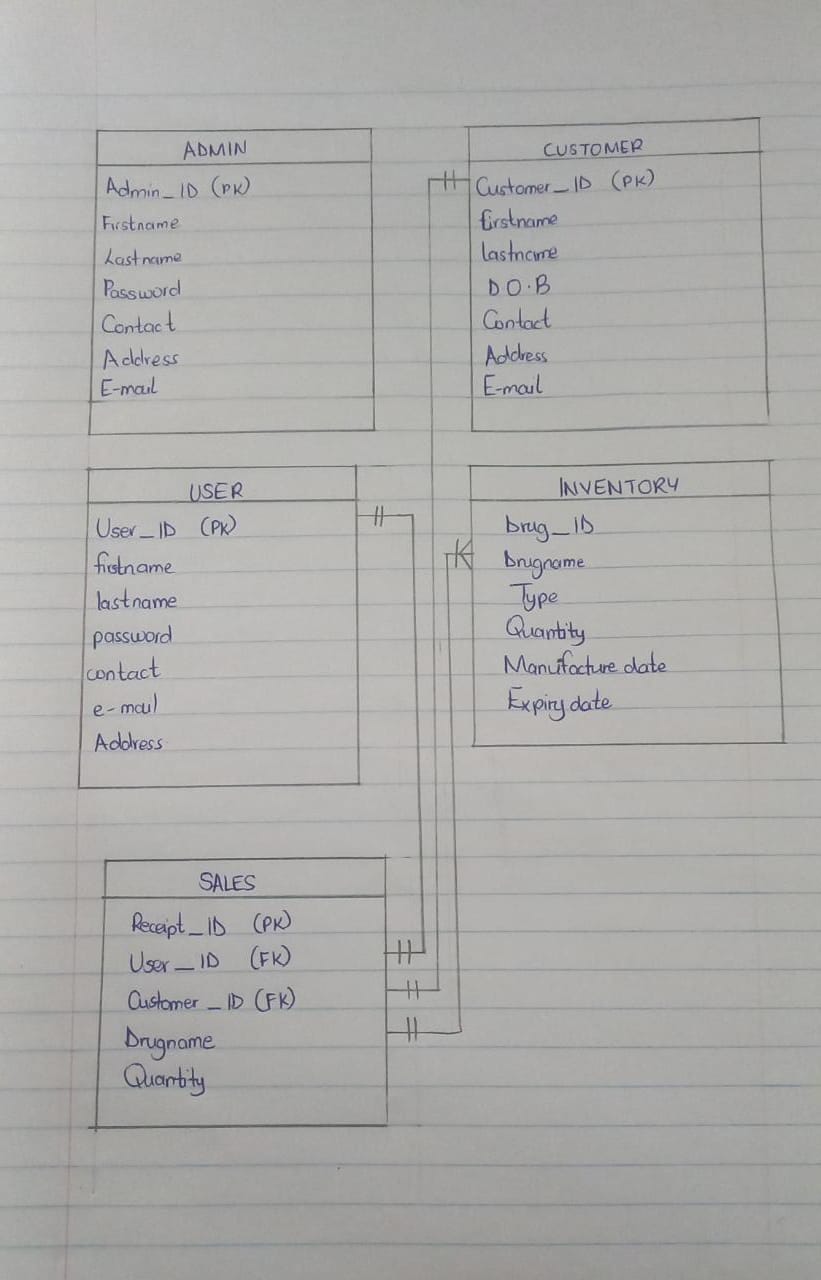 ADMIN
Admin_ID (PK)
Firstname
Lastname
Password
Contact
Address
E-mail
CUSTOMER
Customer_ID (PK)
firstname
lastname
D O.B
Contact
Address
E-mail
USER
User_ID (PK)
firstname
lastname
password
contact
e-mail
Address
INVENTORY
Drug_ID
Drugname
Type
Quantity
Manufacture date
Expiry date
SALES
Receipt_ID (PK)
User_ID (FK)
Customer_ID (FK)
Drugname
Quantity